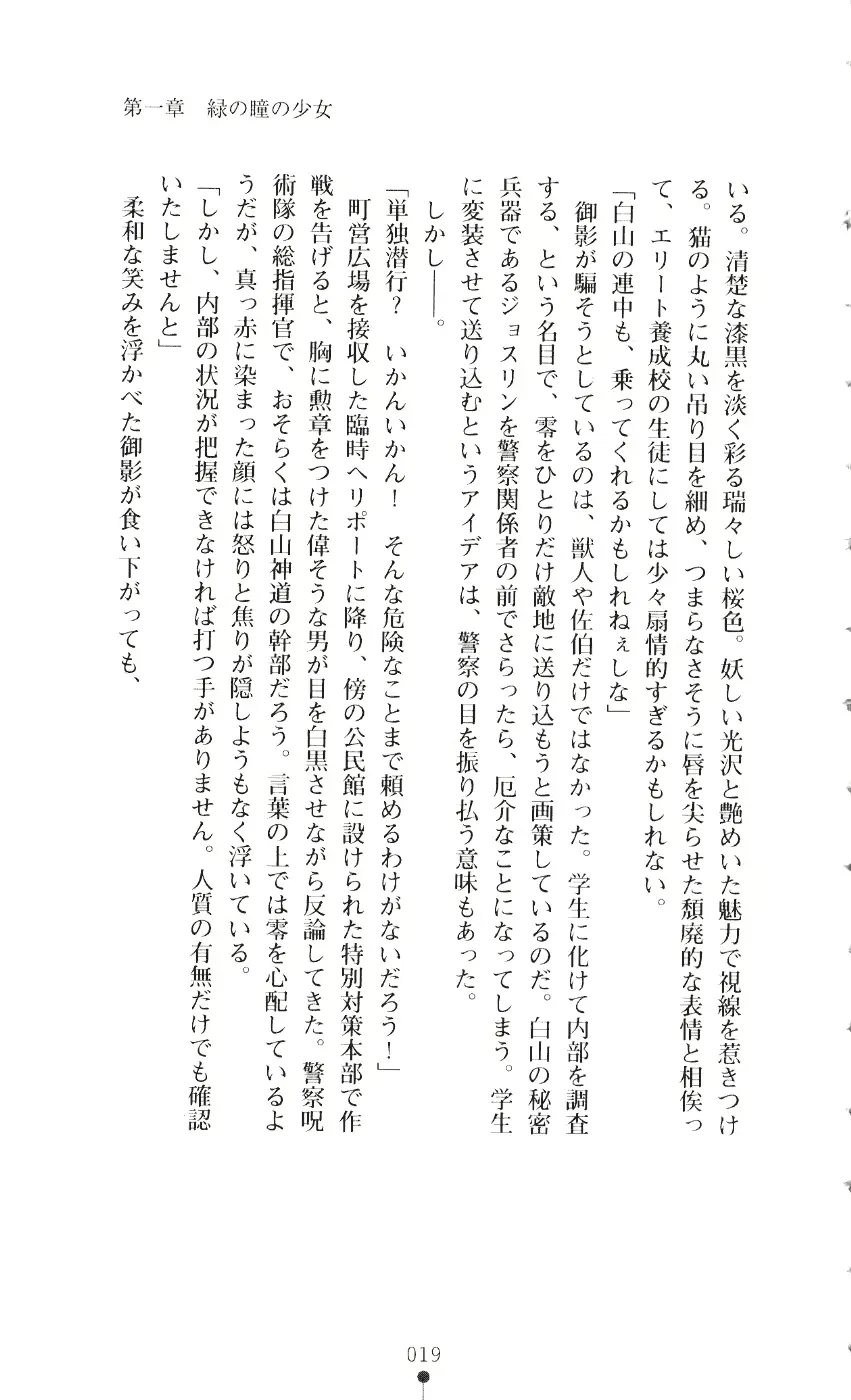 第一章　緑の瞳の少女
いる。清楚な漆黒を淡く彩る瑞々しい桜色。妖しい光沢と艶めいた魅力で視線を惹きつけ
る。猫のように丸い吊り目を細め、つまらなさそうに唇を尖らせた頽廃的な表情と相俟っ
て、エリート養成校の生徒にしては少々扇情的すぎるかもしれない。
「白山の連中も、乗ってくれるかもしれねぇしな」
　御影が騙そうとしているのは、獣人や佐伯だけではなかった。学生に化けて内部を調査
する、という名目で、零をひとりだけ敵地に送り込もうと画策しているのだ。白山の秘密
兵器であるジョスリンを警察関係者の前でさらったら、厄介なことになってしまう。学生
に変装させて送り込むというアイデアは、警察の目を振り払う意味もあった。
　しかし――。
「単独潜行？　いかんいかん！　そんな危険なことまで頼めるわけがないだろう！」
　町営広場を接収した臨時ヘリポートに降り、傍の公民館に設けられた特別対策本部で作
戦を告げると、胸に勲章をつけた偉そうな男が目を白黒させながら反論してきた。警察呪
術隊の総指揮官で、おそらくは白山神道の幹部だろう。言葉の上では零を心配しているよ
うだが、真っ赤に染まった顔には怒りと焦りが隠しようもなく浮いている。
「しかし、内部の状況が把握できなければ打つ手がありません。人質の有無だけでも確認
いたしませんと」
　柔和な笑みを浮かべた御影が食い下がっても、
019